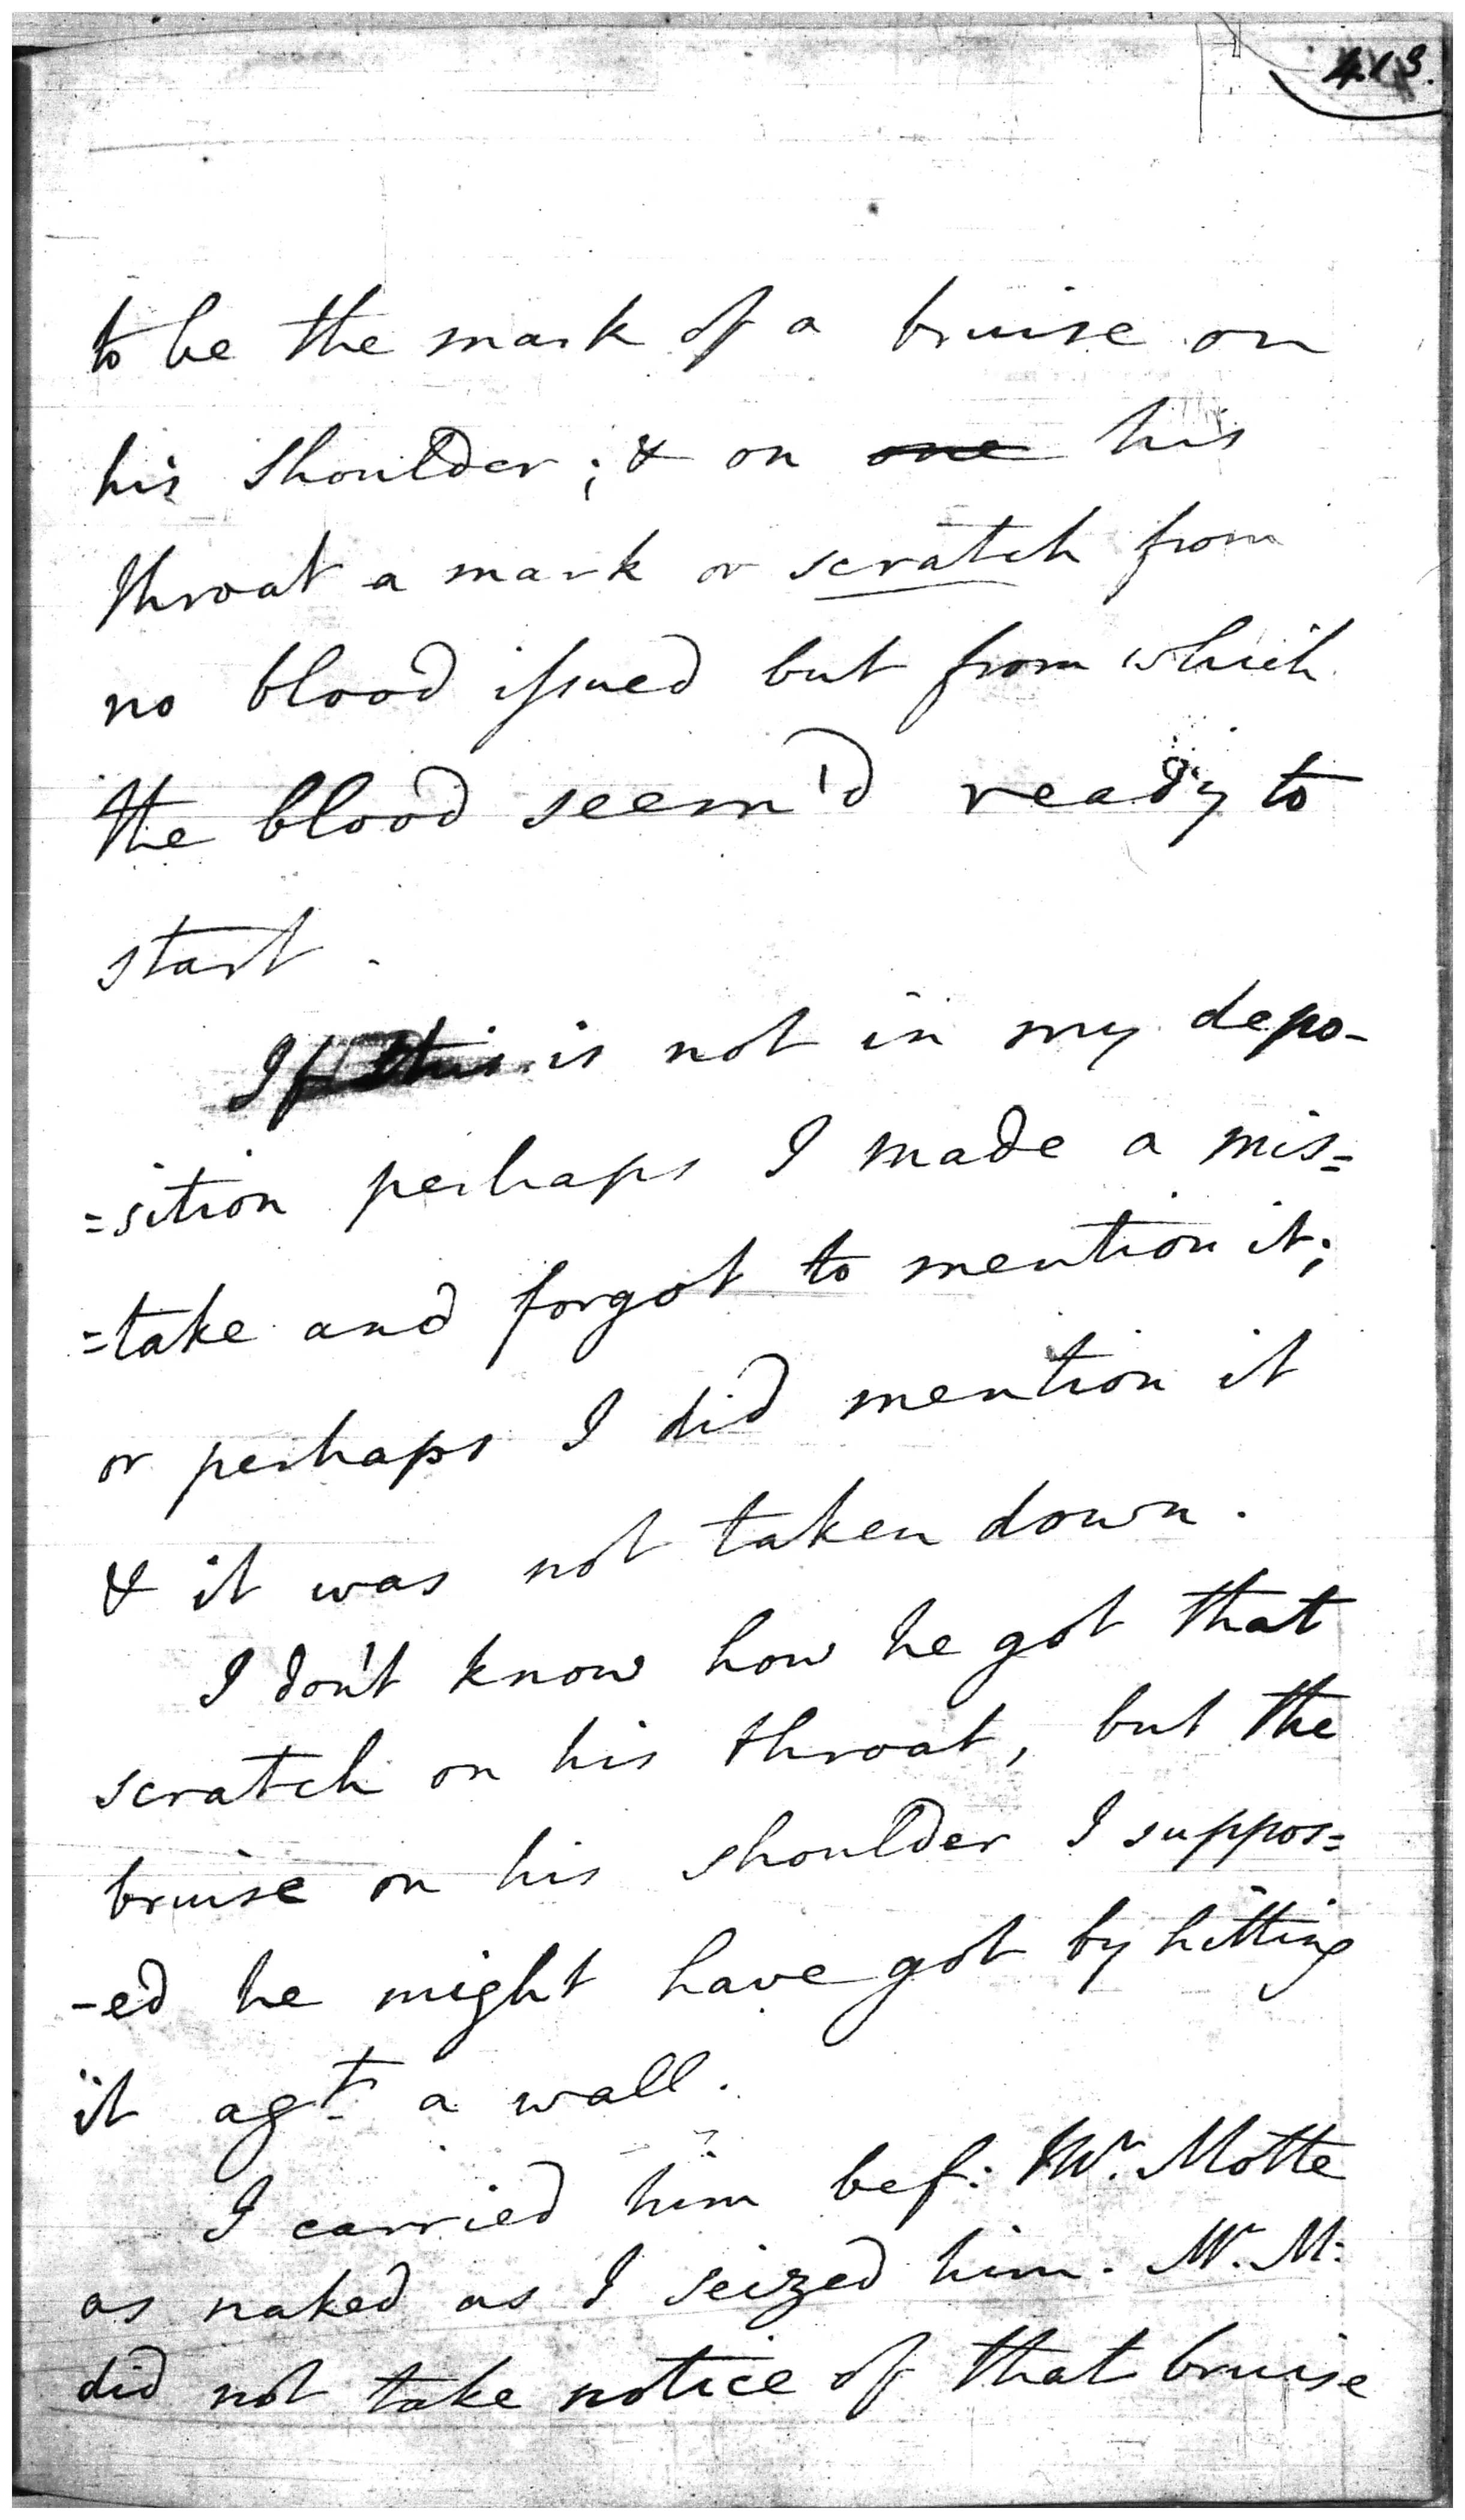 413.
to be the mark of a bruise on
his shoulder; & on one his
throat a mark or scratch from
no blood issued but from which
the blood seem'd ready to
start.
If this is not in my depo-
=sition perhaps I made a mis=
=take and forgot to mention it;
or perhaps I did mention it
& it was not taken down.
I don't know how he got that
scratch on his throat, but the
bruise on his shoulder I suppos=
-ed he might have got by hitting
it agt. a wall.
I carried him bef: Mr. Motte
as naked as I seized him. Mr. M:
did not take notice of that bruise